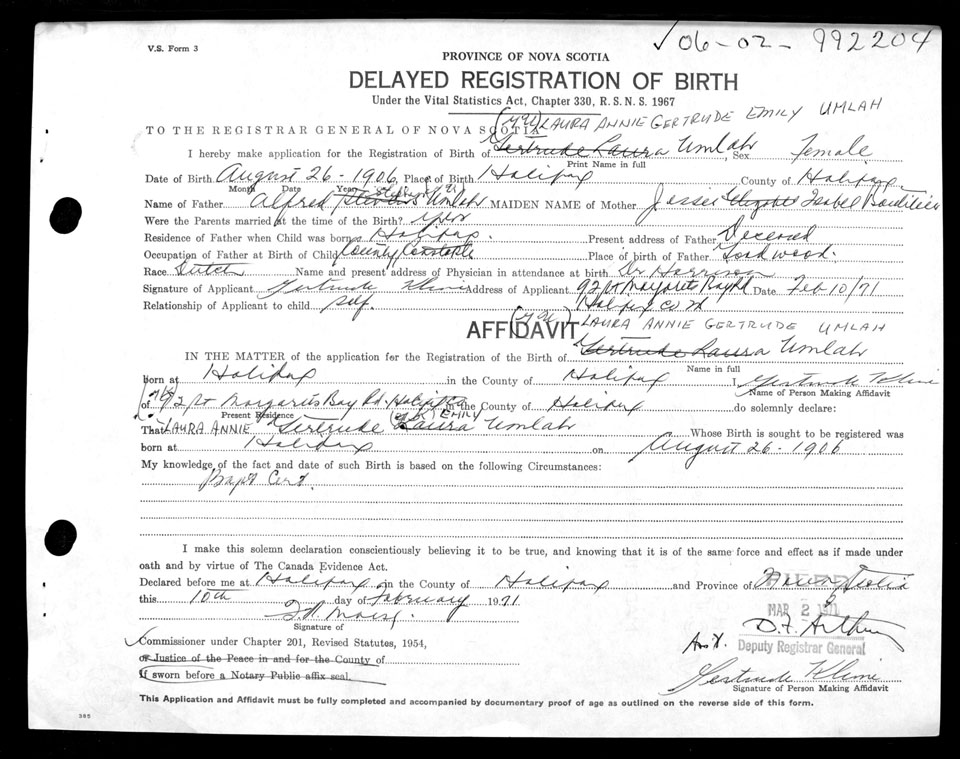 V.S. Form 3
✓ 06-02-992204
PROVINCE OF NOVA SCOTIA
DELAYED REGISTRATION OF BIRTH
Under the Vital Statistics Act, Chapter 330, R.S.N.S. 1967
LAURA ANNIE GERTRUDE EMILY UMLAH
TO THE REGISTRAR GENERAL OF NOVA SCOTIA
I hereby make application for the Registration of Birth of Gertrude Laura Umlah, Sex Female
Print Name in full
Date of Birth August 26-1906 Place of Birth Halifax County of Halifax
Month Date Year
Name of Father Alfred Umlah MAIDEN NAME of Mother Jessie Isabel
Were the Parents married at the time of the Birth?
Residence of Father when Child was born Halifax. Present address of Father Deceased
Occupation of Father at Birth of Child County Constable Place of birth of Father Goodwood.
Race Dutch Name and present address of Physician in attendance at birth Dr Harrison
Signature of Applicant Gertrude Kline Address of Applicant 92 St Margarets Bay Rd Date Feb 10/71
Relationship of Applicant to child self. Halifax
AFFIDAVIT LAURA ANNIE GERTRUDE UMLAH
IN THE MATTER of the application for the Registration of Birth of Gertrude Laura Umlah
Name in full
Born at Halifax in the County of Halifax I Gertrude Kline
Name of Person Making Affidavit
of 92 St Margarets Bay Rd. Halifax in the County of Halifax do solemnly declare:
Present Residence
EMILY
That LAURA ANNIE Gertrude Laura Umlah Whose Birth is sought to be registered was
born at Halifax on August 26-1906
My knowledge of the fact and date of such Birth is based on the following Circumstances:
Bapt Cert.
I make this solemn declaration conscientiously believing it to be true, and knowing that it is of the same force and effect as if made under
oath and by virtue of The Canada Evidence Act.
Declared before me at Halifax in the County of Halifax and Province of Nova Scotia
this 10th day of February 1971
MAR 2 1971
Signature of
Commissioner under Chapter 201, Revised Statutes, 1954,
Deputy Registrar General
or Justice of the Peace in and for the County of
If sworn before a Notary Public affix seal.
Gertrude Kline
Signature of Person Making Affidavit
This Application and Affidavit must be fully completed and accompanied by documentary proof of age as outlined on the reverse side of this form.
385